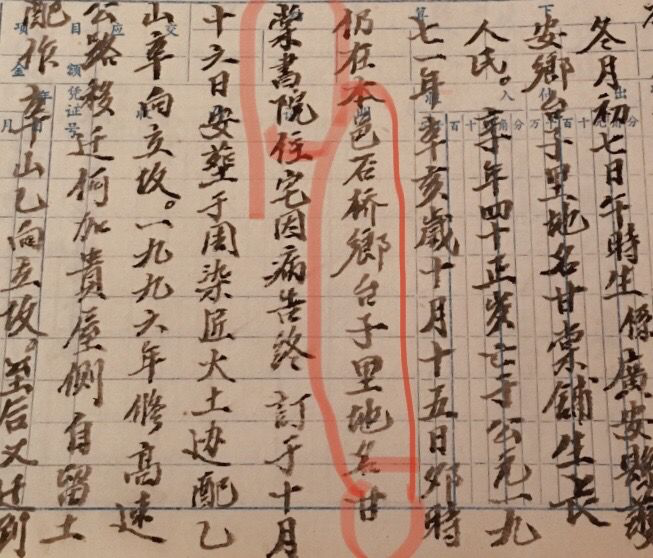 冬月初七日午時生係廣安縣
安鄉台子里地名甘棠鋪生長
人民。享年四十正歲亡于公元一九
七一年辛亥歲十月十五日卯時
仍在本邑石桥鄉台子里地名甘
棠書院住宅因病告終 訂于十月
十六日安葬于周染匠大土边配乙
山辛向立坟。一九九六年修高速
公路移迁何加貴屋側自留土
配作辛山乙向立坟。至后又迁到